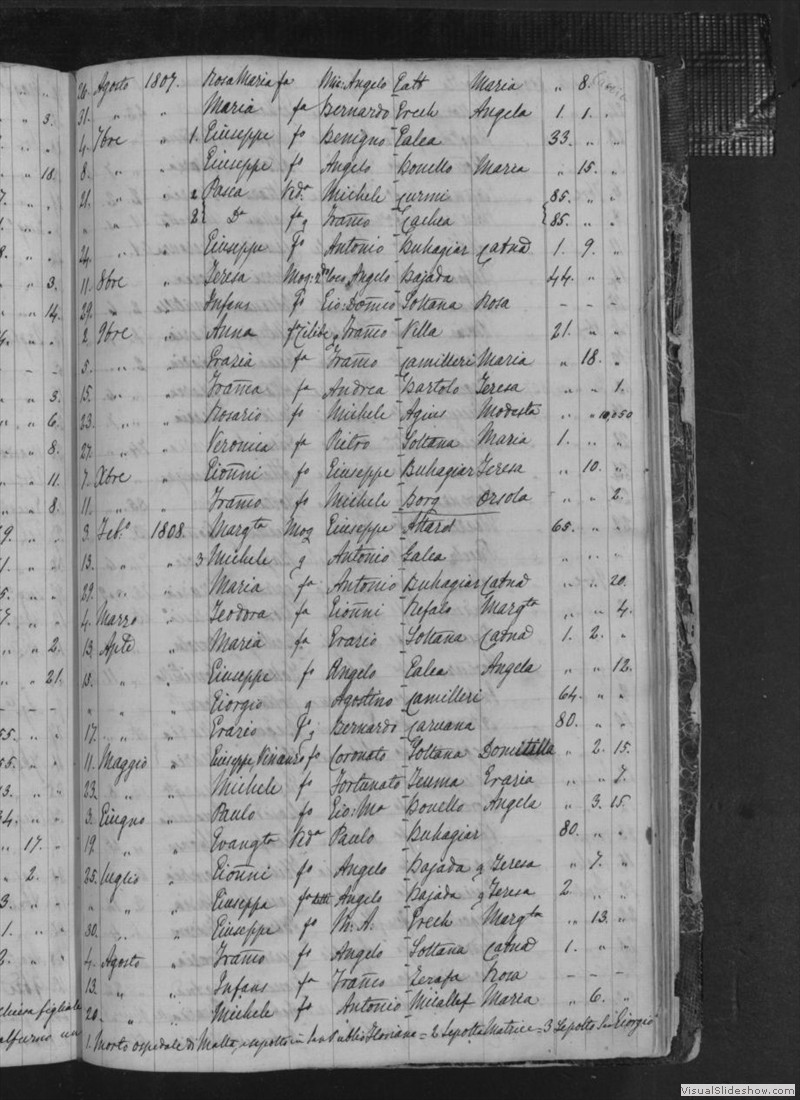 26. Agosto 1807. Rosa Maria fa Mic: Angelo Catt Maria " 8.
31. " " Maria fa Bernardo Grech Angela 1. 1. "
4. 7bre " 1. Giuseppe fo Benigno Galea 33. " "
8. " " Giuseppe fo Angelo Bonello Maria " 15. "
21. " " 2 Pasca Ved.a Michele Curmi 85. " "
" 2 { Da fa g Franco Cachea { 85. " "
24. " " Giuseppe fo Antonio Buhagiar Catna 1. 9. "
11. 8bre " Teresa Mog: Angelo Bajada 44. " "
29. " " Infans fo Gio: Domco Soltana Rosa - - -
2. 9bre " Anna Franco Vella 21. " "
5. " " Grazia fa Franco Camilleri Maria " 18. "
15. " " Franca fa Andrea Bartolo Teresa " " 1.
23. " " Rosario fo Michele Agius Modesta " "
27. " " Veronica fa Pietro Soltana Maria 1. " "
7. Xbre " Gionni fo Giuseppe Buhagiar Teresa " 10. "
11. " " Franco fo Michele Borg Orsola " " 2.
3. Feb.o 1808. Margta Mog Giuseppe Attard 65. " "
13. " " 3 Michele g Antonio Galea " " "
29. " " Maria fa Antonio Buhagiar Catna " " 20.
4. Marzo " Teodora fa Gionni Refalo Margta " " 4.
13. Aple " Maria fa Grazio Soltana Catna 1. 2. "
15. " " Giuseppe fo Angelo Galea Angela " " 12.
" " " Giorgio g Agostino Camilleri 64. " "
17. " " Grazio g Bernardo Caruana 80. " "
11. Maggio " Giuseppe Vincenzo fo Coronato Soltana Domitilla " 2. 15.
23. " " Michele fo Fortunato Teuma Grazia " " 7.
3. Giugno " Paulo fo Gio: Ma Bonello Angela " 3. 15.
19. " " Evangta Ved.a Paulo Buhagiar 80. " "
25. Luglio " Gionni fo Angelo Bajada g Teresa " 7. "
" " " Giuseppa fa Angelo Bajada g Teresa 2. " "
30. " " Giuseppe fo M: A. Grech Margta " 13. "
4. Agosto " Franco fo Angelo Soltana Catna 1. " "
13. " " Infans fa Franco Zerafa Rosa - - -
20. " " Michele fo Antonio Micallef Maria " 6. "
1. Morto ospedale di Malta, sepolto in San Publio Floriana = 2 Sepolta Matrice = 3 Sepolto Sn Giorgio
VisualSlideshow.com